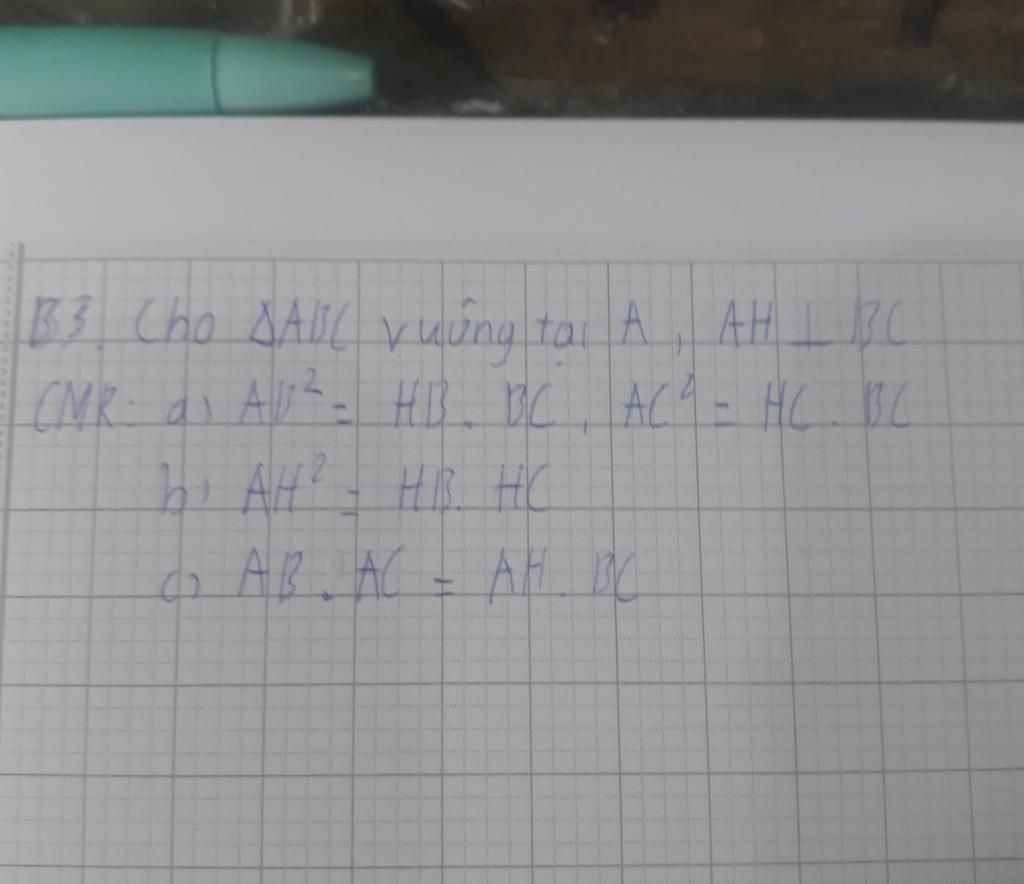 B3. Cho ΔABC vuông tại A, AH ⊥ BC
CMR: a) AB² = HB. BC, AC² = HC. BC
b) AH² = HB. HC
c) AB. AC = AH. BC